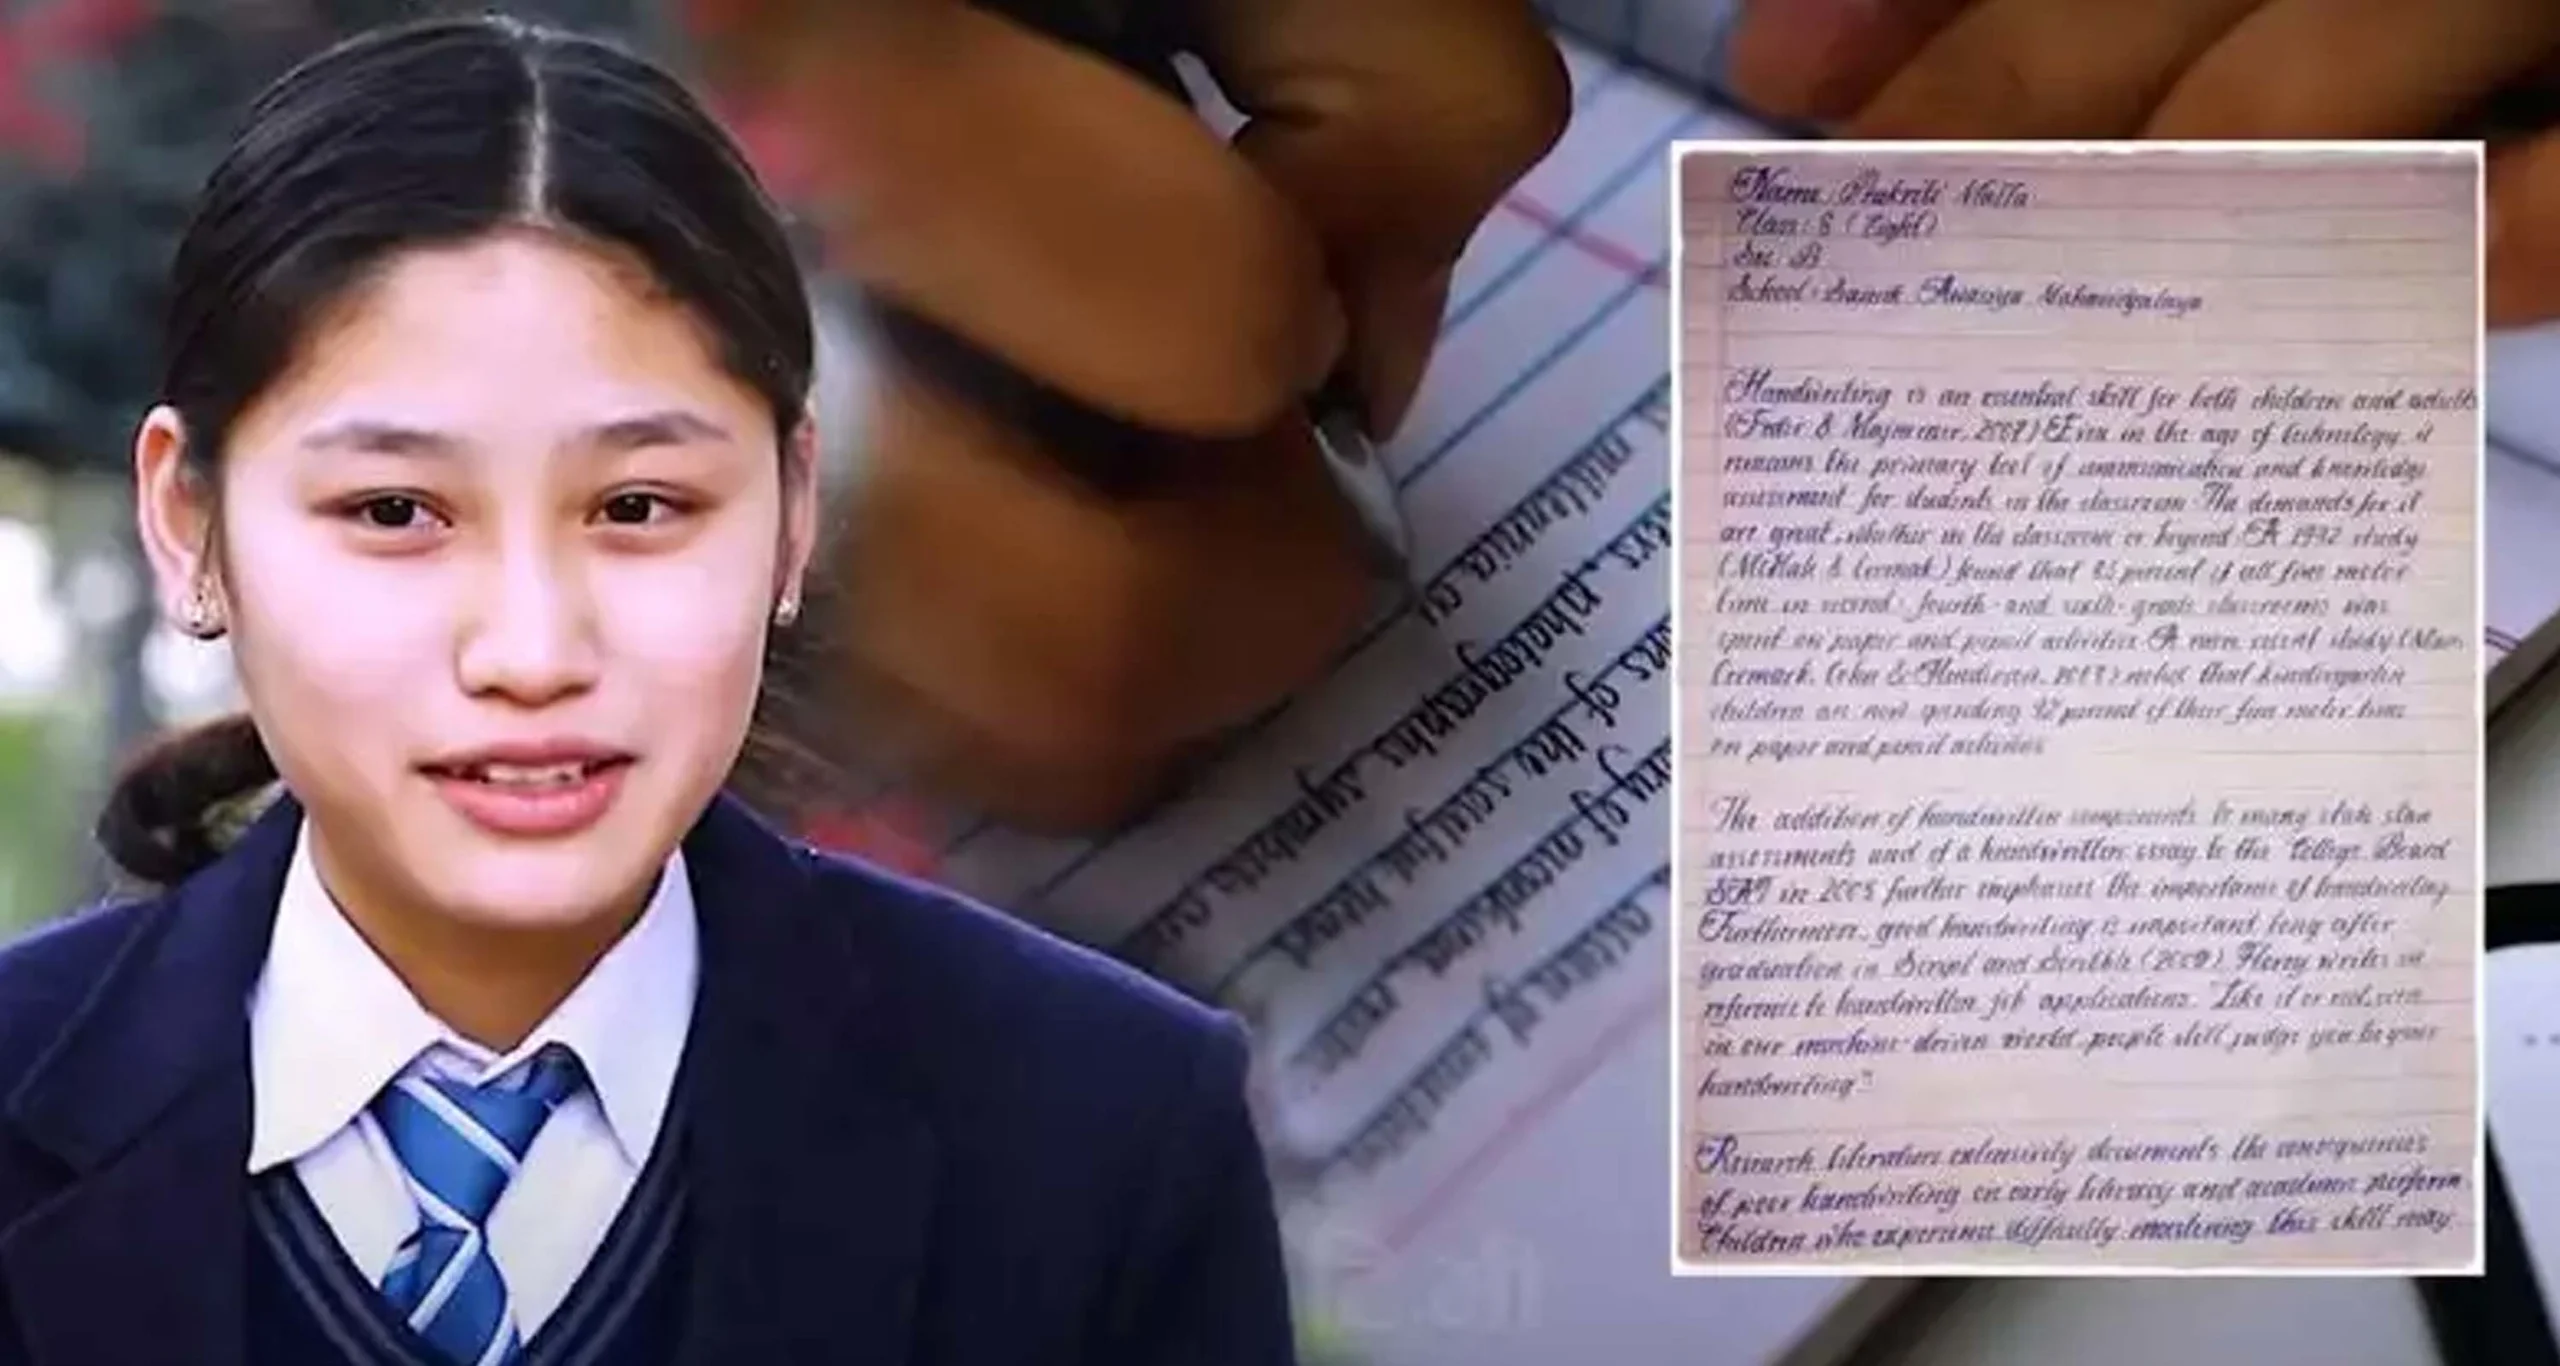 Name: Prakriti Malla
Class: 8 (Eight)
Sec: B
School: Sainik Awasiya Mahavidyalaya
Handwriting is an essential skill for both children and adults
(Feder & Majnemer, 2007) Even in the age of technology, it
remains the primary tool of communication and knowledge
assessment for students in the classroom. The demands for it
are great, whether in the classroom or beyond. A 1992 study
(McHale & Cermak) found that 85 percent of all fine motor
time in second-, fourth- and sixth-grade classrooms was
spent on paper and pencil activities. A more recent study
Cermack, Cohn & Henderson, 2003) noted that kindergarten
children are now spending 42 percent of their fine motor time
on paper and pencil activities
The addition of handwritten components to many state
assessments and of a handwritten essay to the College Board
SAT in 2005 further emphasises the importance of handwriting
Furthermore, good handwriting is important long after
graduation in Script and Scribble (2009) Florey writes in
reference to handwritten job applications. "Like it or not, even
in our machine-driven world, people still judge you by your
handwriting"
Research literature extensively documents the consequences
of poor handwriting on early literacy and academic perform
Children who experience difficulty mastering this skill may
photographs symbols
of the soulful heart
of
of